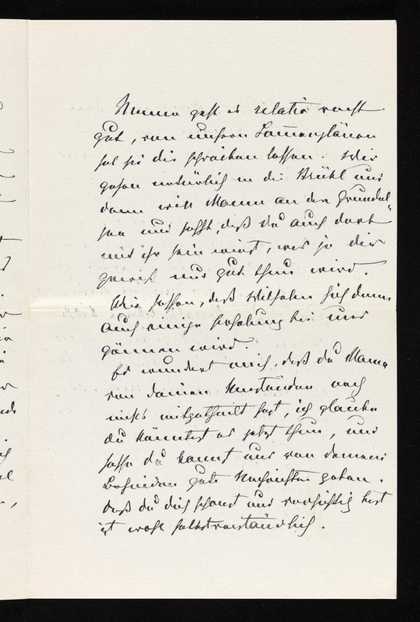 Mama geht es relativ recht
gut, von unseren Sommerplänen
hat sie dir schreiben lassen. Wir
gehen natürlich in die Brühl und
dann will Mama an den Grundel-
see und hofft, daß du auch dort
mit ihr sein wirst, was ja dir
gewiß nur gut thun wird.
Wir hoffen, daß Wilhelm sich dann
auch einige Erholung bei uns
gönnen wird.
Es wundert mich, daß du Mama
von deinen Umständen noch
nichts mitgetheilt hast, ich glaube
du könntest es jetzt thun, und
hoffe du kannst uns von deinem
Befinden gute Nachrichten geben.
Daß du dich schonst und vorsichtig bist
ist wohl selbstverständlich.